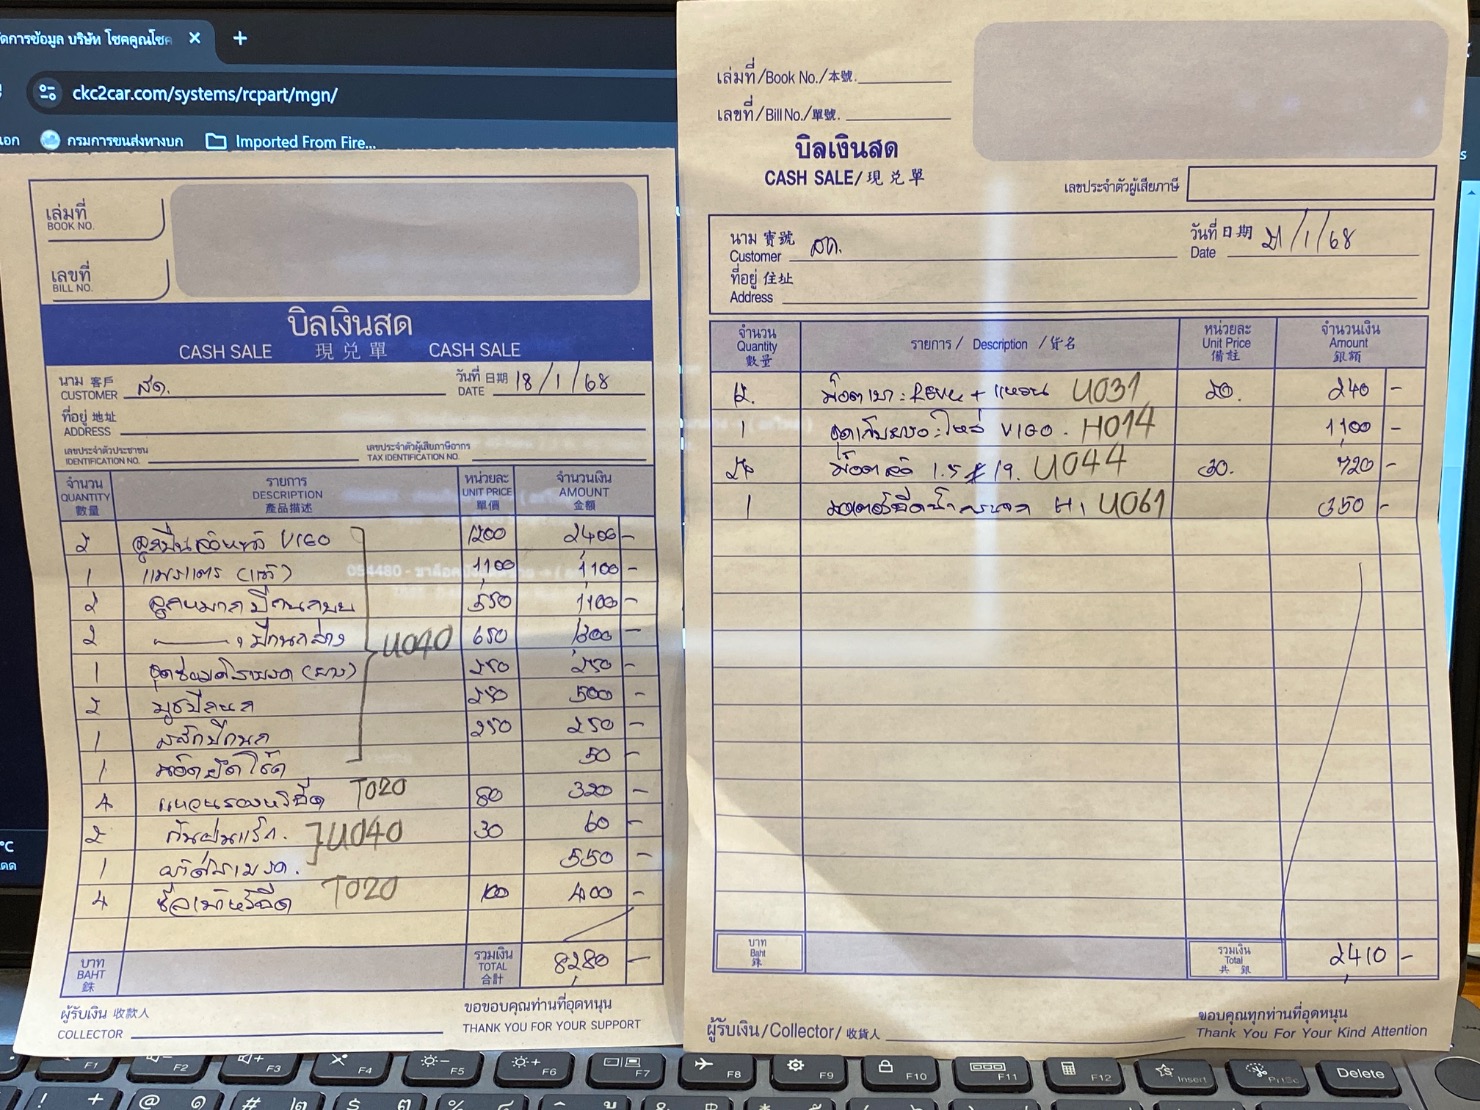 จัดการข้อมูล บริษัท โชคคูณโชค
ckc2car.com/systems/rcpart/mgn/
กรมการขนส่งทางบก
Imported From Fire...
เล่มที่
BOOK NO.
เลขที่
BILL NO.
บิลเงินสด
CASH SALE 現兌單 CASH SALE
นาม 客戶 CUSTOMER สด. วันที่ 日期 DATE 18/1/68
ที่อยู่ 地址
ADDRESS
เลขประจำตัวประชาชน IDENTIFICATION NO. เลขประจำตัวผู้เสียภาษีอากร TAX IDENTIFICATION NO.
จำนวน รายการ หน่วยละ จำนวนเงิน
QUANTITY DESCRIPTION UNIT PRICE AMOUNT
數量 產品描述 單價 金額
2 ลูกปืนล้อหน้า VIGO 1200 2400 -
1 (แท้) 1100 1,100 -
2 ลูกหมากปีกนกบน 550 1,100 -
2 ปีกนกล่าง 650 1,300 -
U040
1 (ยาง) 250 250 -
2 บูชปีกนก 250 500 -
1 ปีกนก 250 250 -
1 50 -
4 แหวนรองหัวฉีด T020 80 320 -
2 กันฝุ่นแร็ค. U040 30 60 -
1 550 -
4 ซีลเบ้าหัวฉีด T020 100 400 -
บาท รวมเงิน
BAHT TOTAL 8,280 -
銖 合計
ผู้รับเงิน 收款人
COLLECTOR
ขอขอบคุณท่านที่อุดหนุน
THANK YOU FOR YOUR SUPPORT
เล่มที่/Book No./本號.
เลขที่/Bill No./單號.
บิลเงินสด
CASH SALE/現兌單
เลขประจำตัวผู้เสียภาษี
นาม 寶號 Customer สด. วันที่ 日期 Date 21/1/68
ที่อยู่ 住址
Address
จำนวน หน่วยละ จำนวนเงิน
Quantity รายการ / Description / 貨名 Unit Price Amount
數量 備註 銀額
12. + แหวน U031 20. 240 -
1 VIGO. H014 1,100 -
24 น็อตล้อ 1.5 19. U044 30. 720 -
1 มอเตอร์ฉีดน้ำ H1 U061 350 -
บาท รวมเงิน
Baht Total 2,410 -
銖 共銀
ผู้รับเงิน/Collector/收貨人
ขอบคุณทุกท่านที่อุดหนุน
Thank You For Your Kind Attention
F1 F2 F3 F4 F5 F6 F7 F8 F9 F10 F11 F12 Insert PrtSc Delete